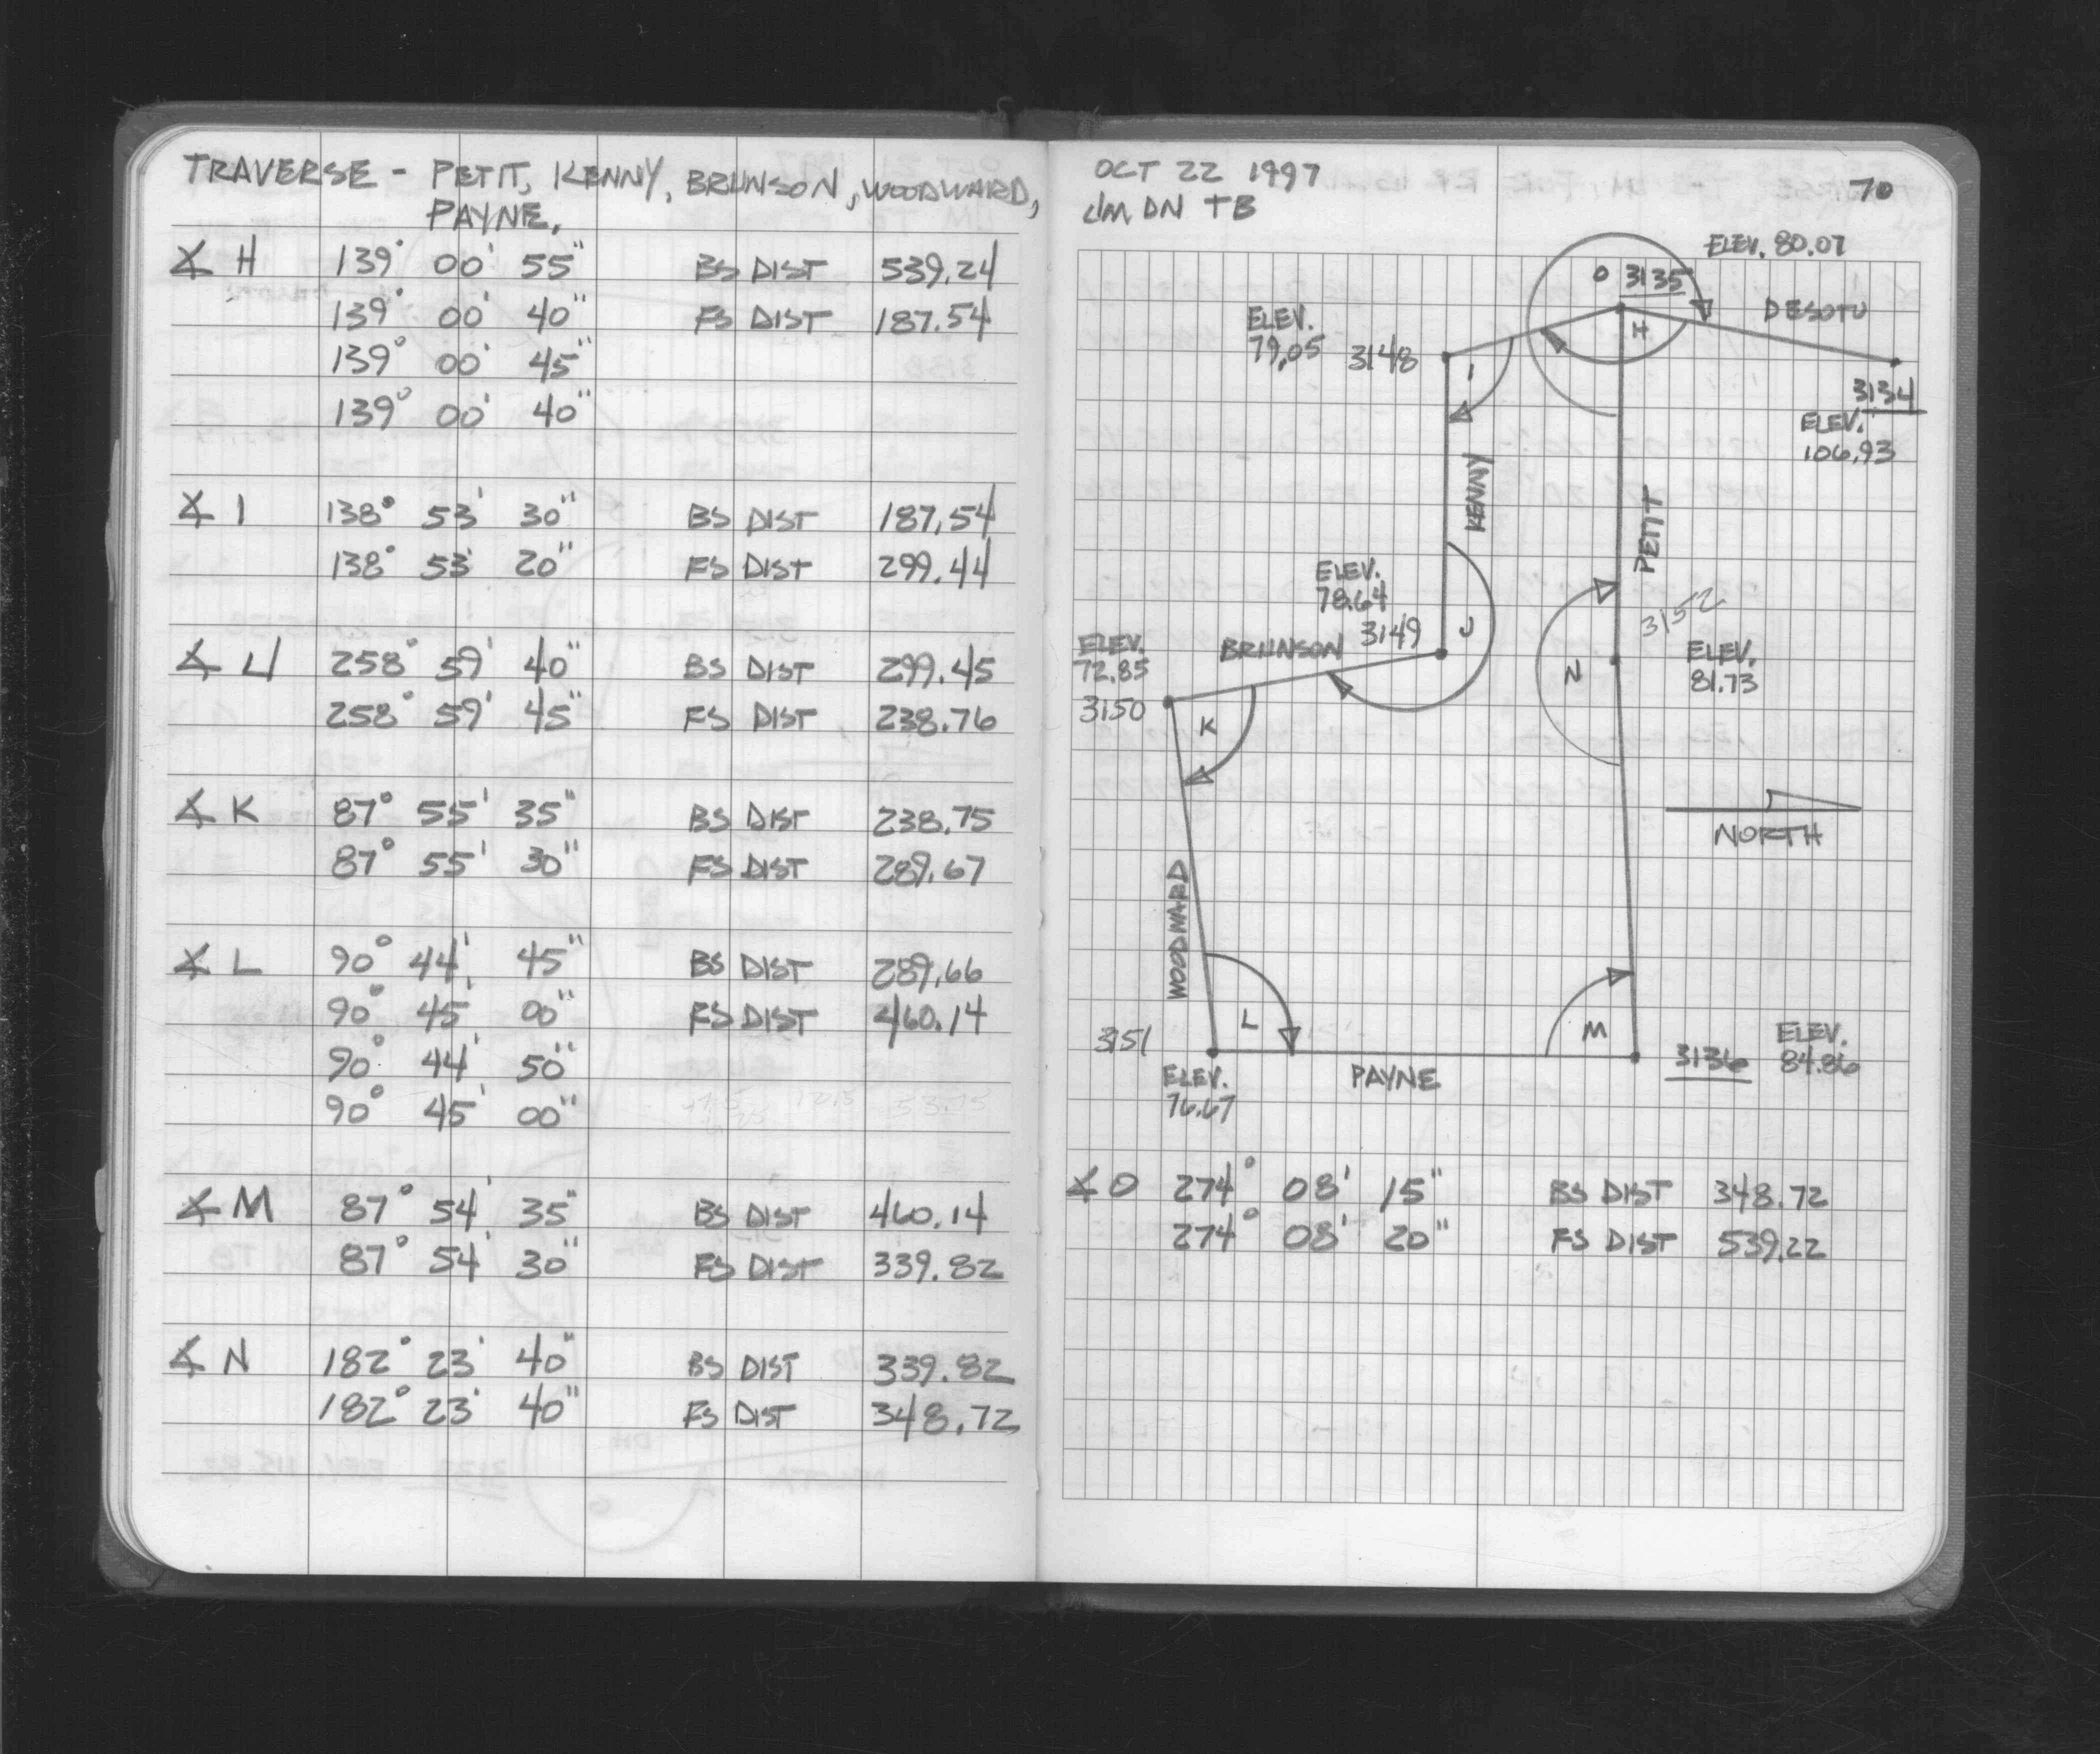 TRAVERSE - PETIT, KENNY, BRUNSON, WOODWARD,
PAYNE,
∡ H 139° 00' 55" BS DIST 539.24
139° 00' 40" FS DIST 187.54
139° 00' 45"
139° 00' 40"
∡ I 138° 53' 30" BS DIST 187.54
138° 53' 20" FS DIST 299.44
∡ J 258° 59' 40" BS DIST 299.45
258° 59' 45" FS DIST 238.76
∡ K 87° 55' 35" BS DIST 238.75
87° 55' 30" FS DIST 289.67
∡ L 90° 44' 45" BS DIST 289.66
90° 45' 00" FS DIST 460.14
90° 44' 50"
90° 45' 00"
∡ M 87° 54' 35" BS DIST 460.14
87° 54' 30" FS DIST 339.82
∡ N 182° 23' 40" BS DIST 339.82
182° 23' 40" FS DIST 348.72
OCT 22 1997
JM DN TB
70
ELEV. 80.07
O 3135
H
DESOTO
ELEV.
79.05 3148
I
3134
ELEV.
106.93
KENNY
PETIT
ELEV.
78.64
3149
J
BRUNSON
3152
ELEV.
81.73
N
ELEV.
72.85
3150
K
NORTH
WOODWARD
L
M
3151
ELEV.
76.67
PAYNE
3136
ELEV.
84.86
∡ O 274° 08' 15" BS DIST 348.72
274° 08' 20" FS DIST 539.22